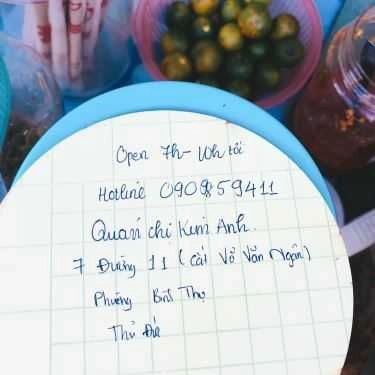 Open 7h - 10h tối
Hotline 0909859411
Quán chị Kim Anh.
7 Đường 11 (cắt Võ Văn Ngân)
Phường Bình Thọ
Thủ Đức